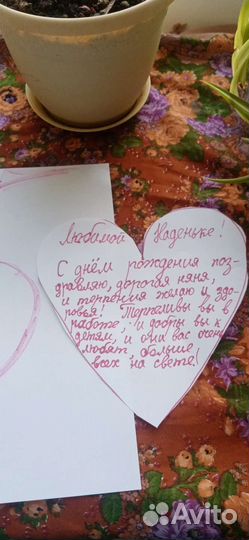 Любимой Наденьке!
С днём рождения поз-
дравляю, дорогая няня,
и терпения желаю и здо-
ровья! Терпеливы вы в
работе, и добры вы к
детям, и они вас очень
любят, больше
всех на свете!
Avito